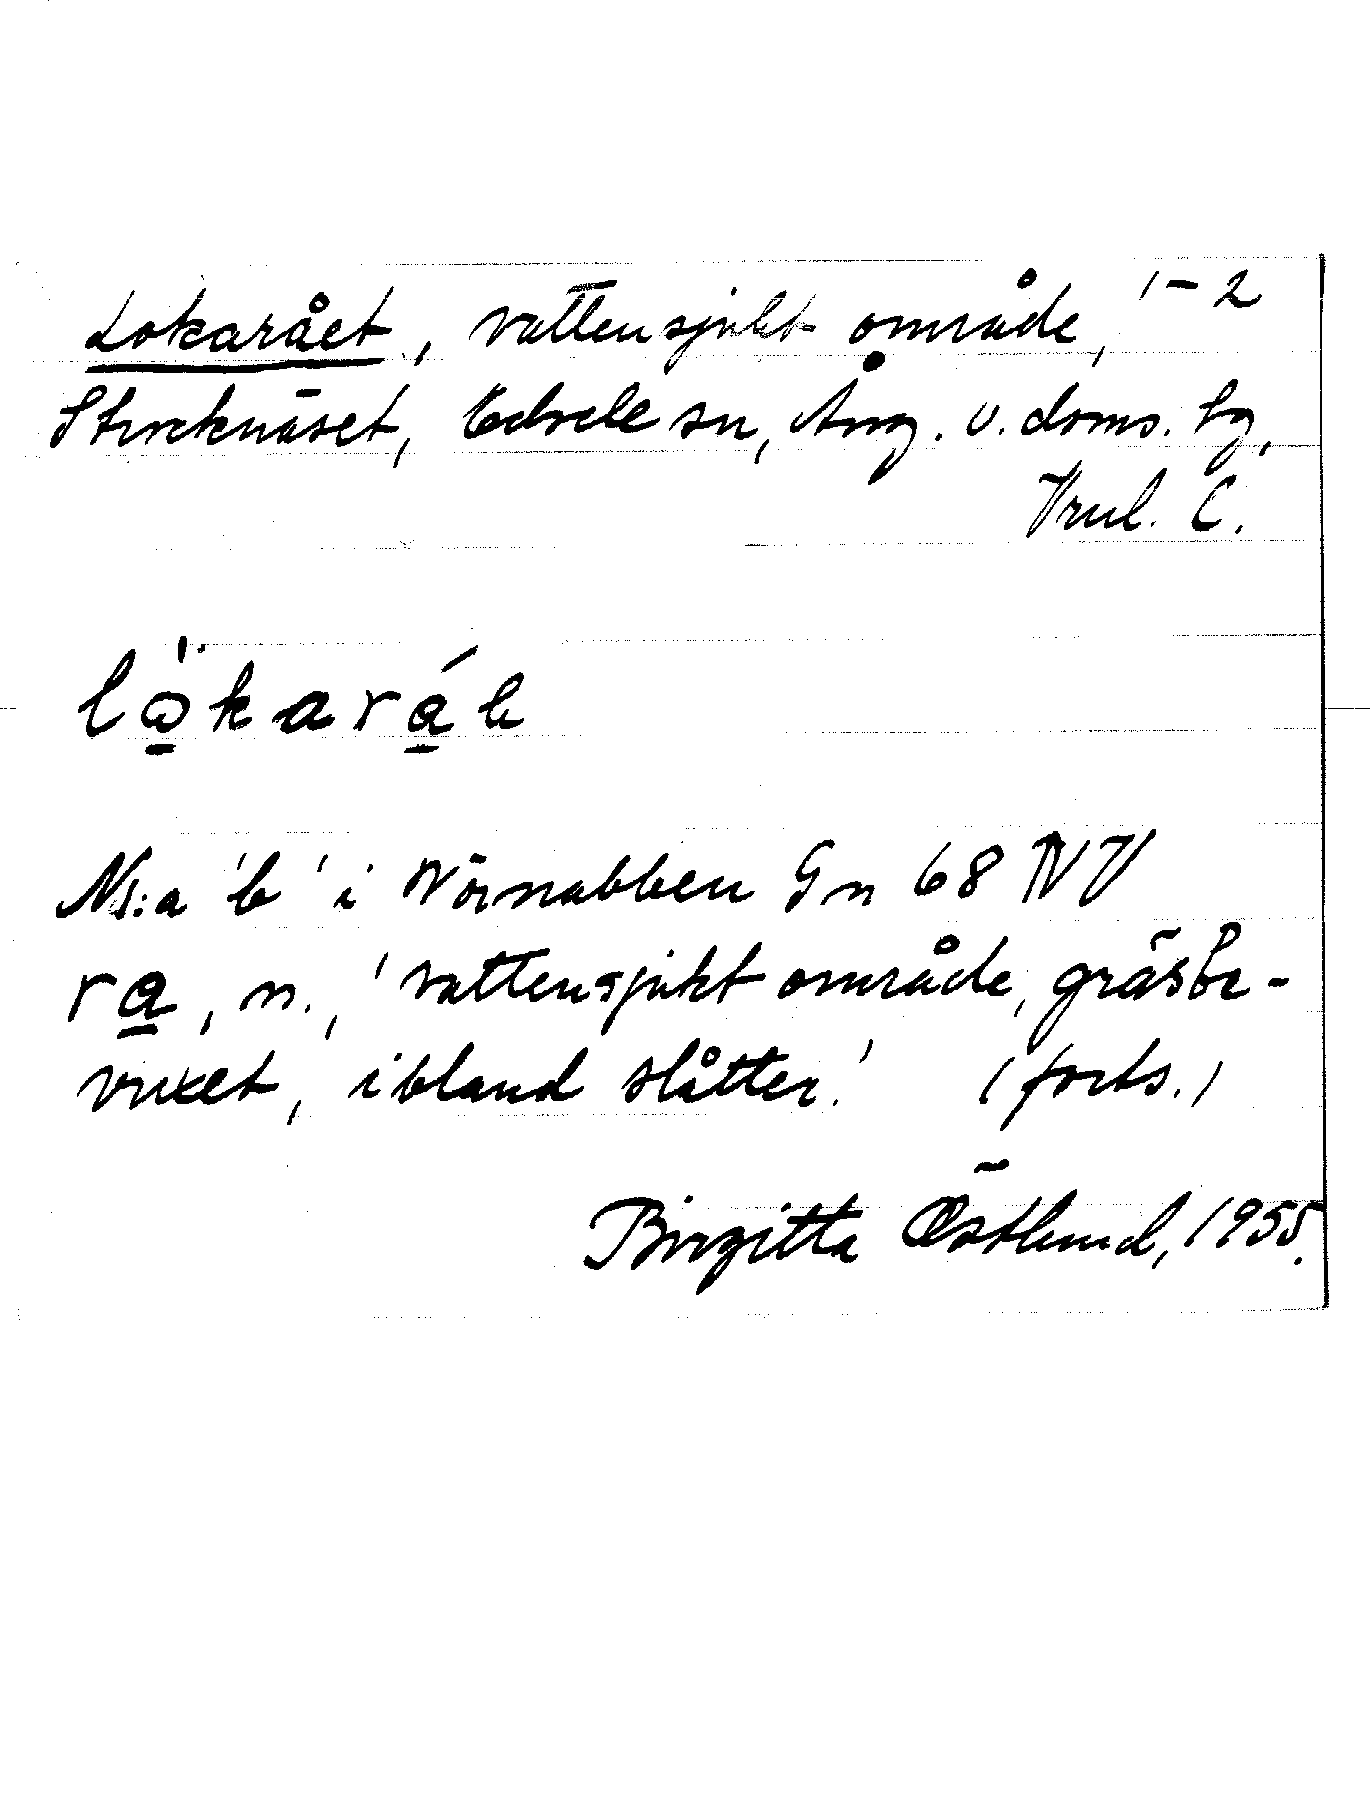 Lokarået, vattensjukt område, 1-2
Stocknäset, Edsele sn, Ång. v. doms. sg,
Vml. C.
lökaráe
Ns:a 'b' i Nörnabben Gn 68 NV
ra, n., 'vattensjukt område, gräsbe-
vuxet, ibland slåtter.' (forts.)
Birgitta Östlund, 1955.